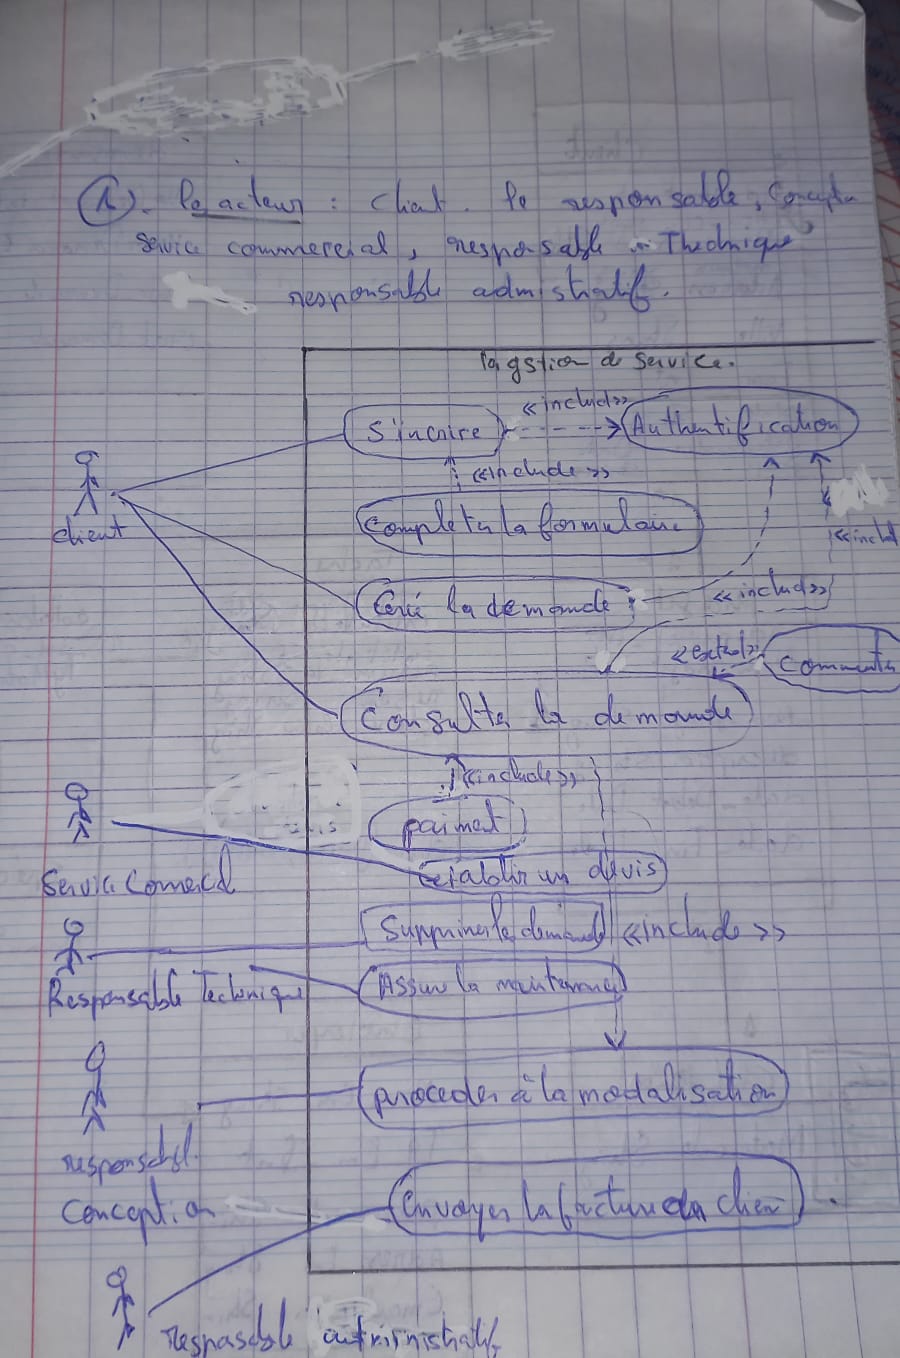 1). le acteur : client. le responsable, Concepta
Service commercial, responsable Thechnique
responsable admistratif.
la gstion de service.
S'incrire <<includ>> Authentification
<<include>>
client
Completer la formulaire
<<includ>>
la demande <<includ>>
<<extend>> Commenter
Consulter la demande
<<include>>
paiment
etablir un devis
Service Comercial
Supprimer la demande <<include>>
Responsable Technique
Assure la maintenance
proceder à la modalisation
responsabl.
Conception
Envoyer la facture client
responsable administratif